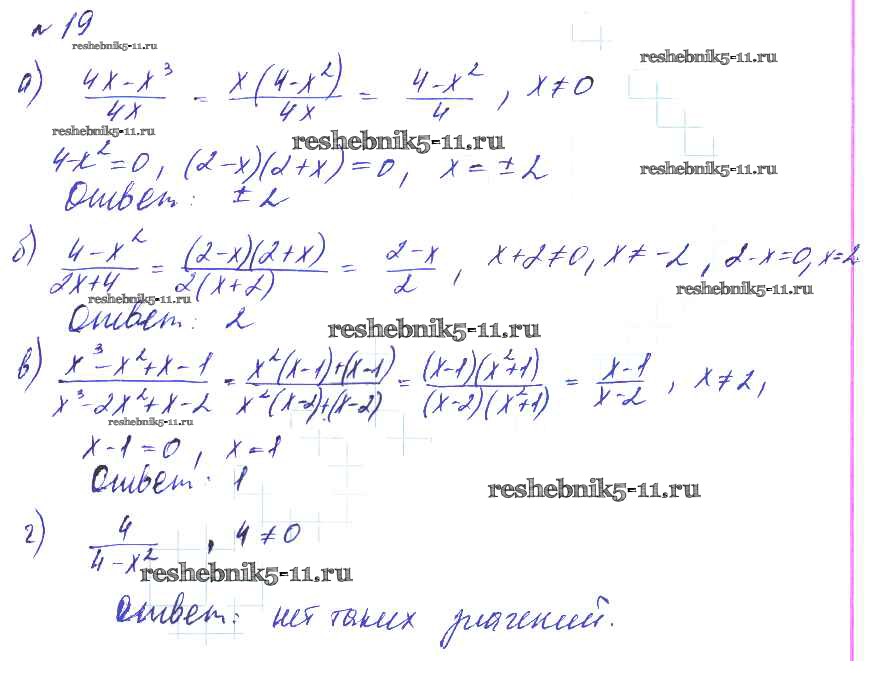 № 19
reshebnik5-11.ru
reshebnik5-11.ru
а) (4x-x³)/4x = x(4-x²)/4x = (4-x²)/4, x≠0
reshebnik5-11.ru
reshebnik5-11.ru
4-x²=0, (2-x)(2+x)=0, x=±2
reshebnik5-11.ru
Ответ: ±2
б) (4-x²)/(2x+4) = (2-x)(2+x)/2(x+2) = (2-x)/2, x+2≠0, x≠-2, 2-x=0, x=2.
reshebnik5-11.ru
reshebnik5-11.ru
Ответ: 2
reshebnik5-11.ru
в) (x³-x²+x-1)/(x³-2x²+x-2) = (x²(x-1)+(x-1))/(x²(x-2)+(x-2)) = (x-1)(x²+1)/(x-2)(x²+1) = (x-1)/(x-2), x≠2,
reshebnik5-11.ru
x-1=0, x=1
Ответ: 1
reshebnik5-11.ru
г) 4/(4-x²), 4≠0
reshebnik5-11.ru
Ответ: нет таких значений.